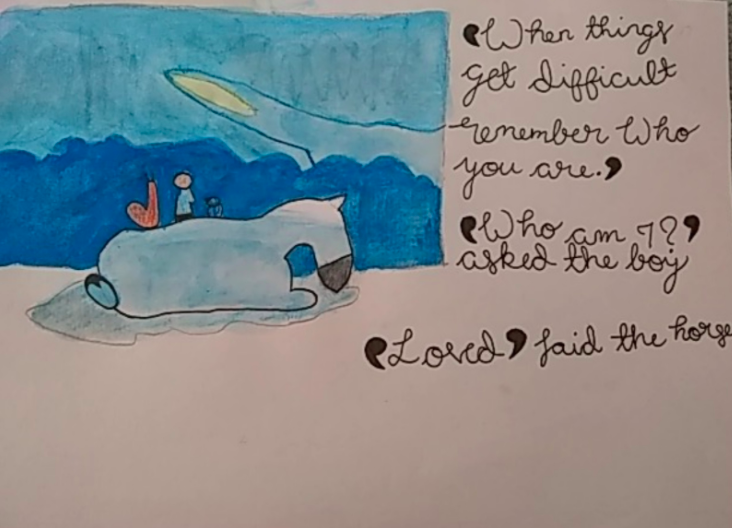 ‘When things
get difficult
remember who
you are.’
‘Who am I?’
asked the boy
‘Loved’ said the horse